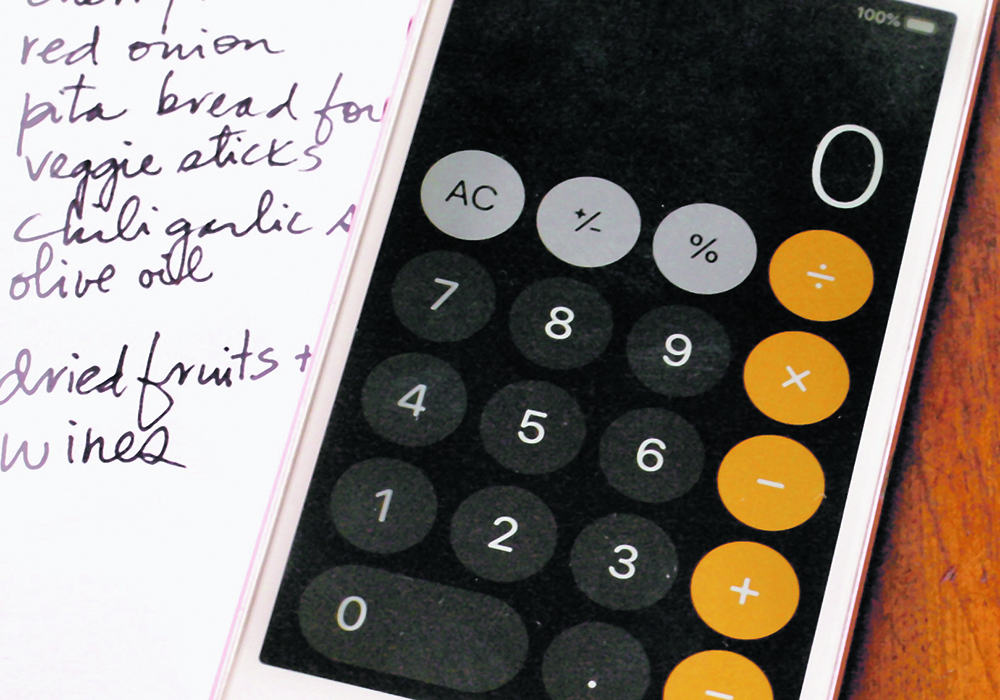 red onion
pita bread for
veggie sticks
chili garlic
olive oil
dried fruits +
wines
100%
0
AC +/- % ÷
7 8 9 ×
4 5 6 −
1 2 3 +
0 .